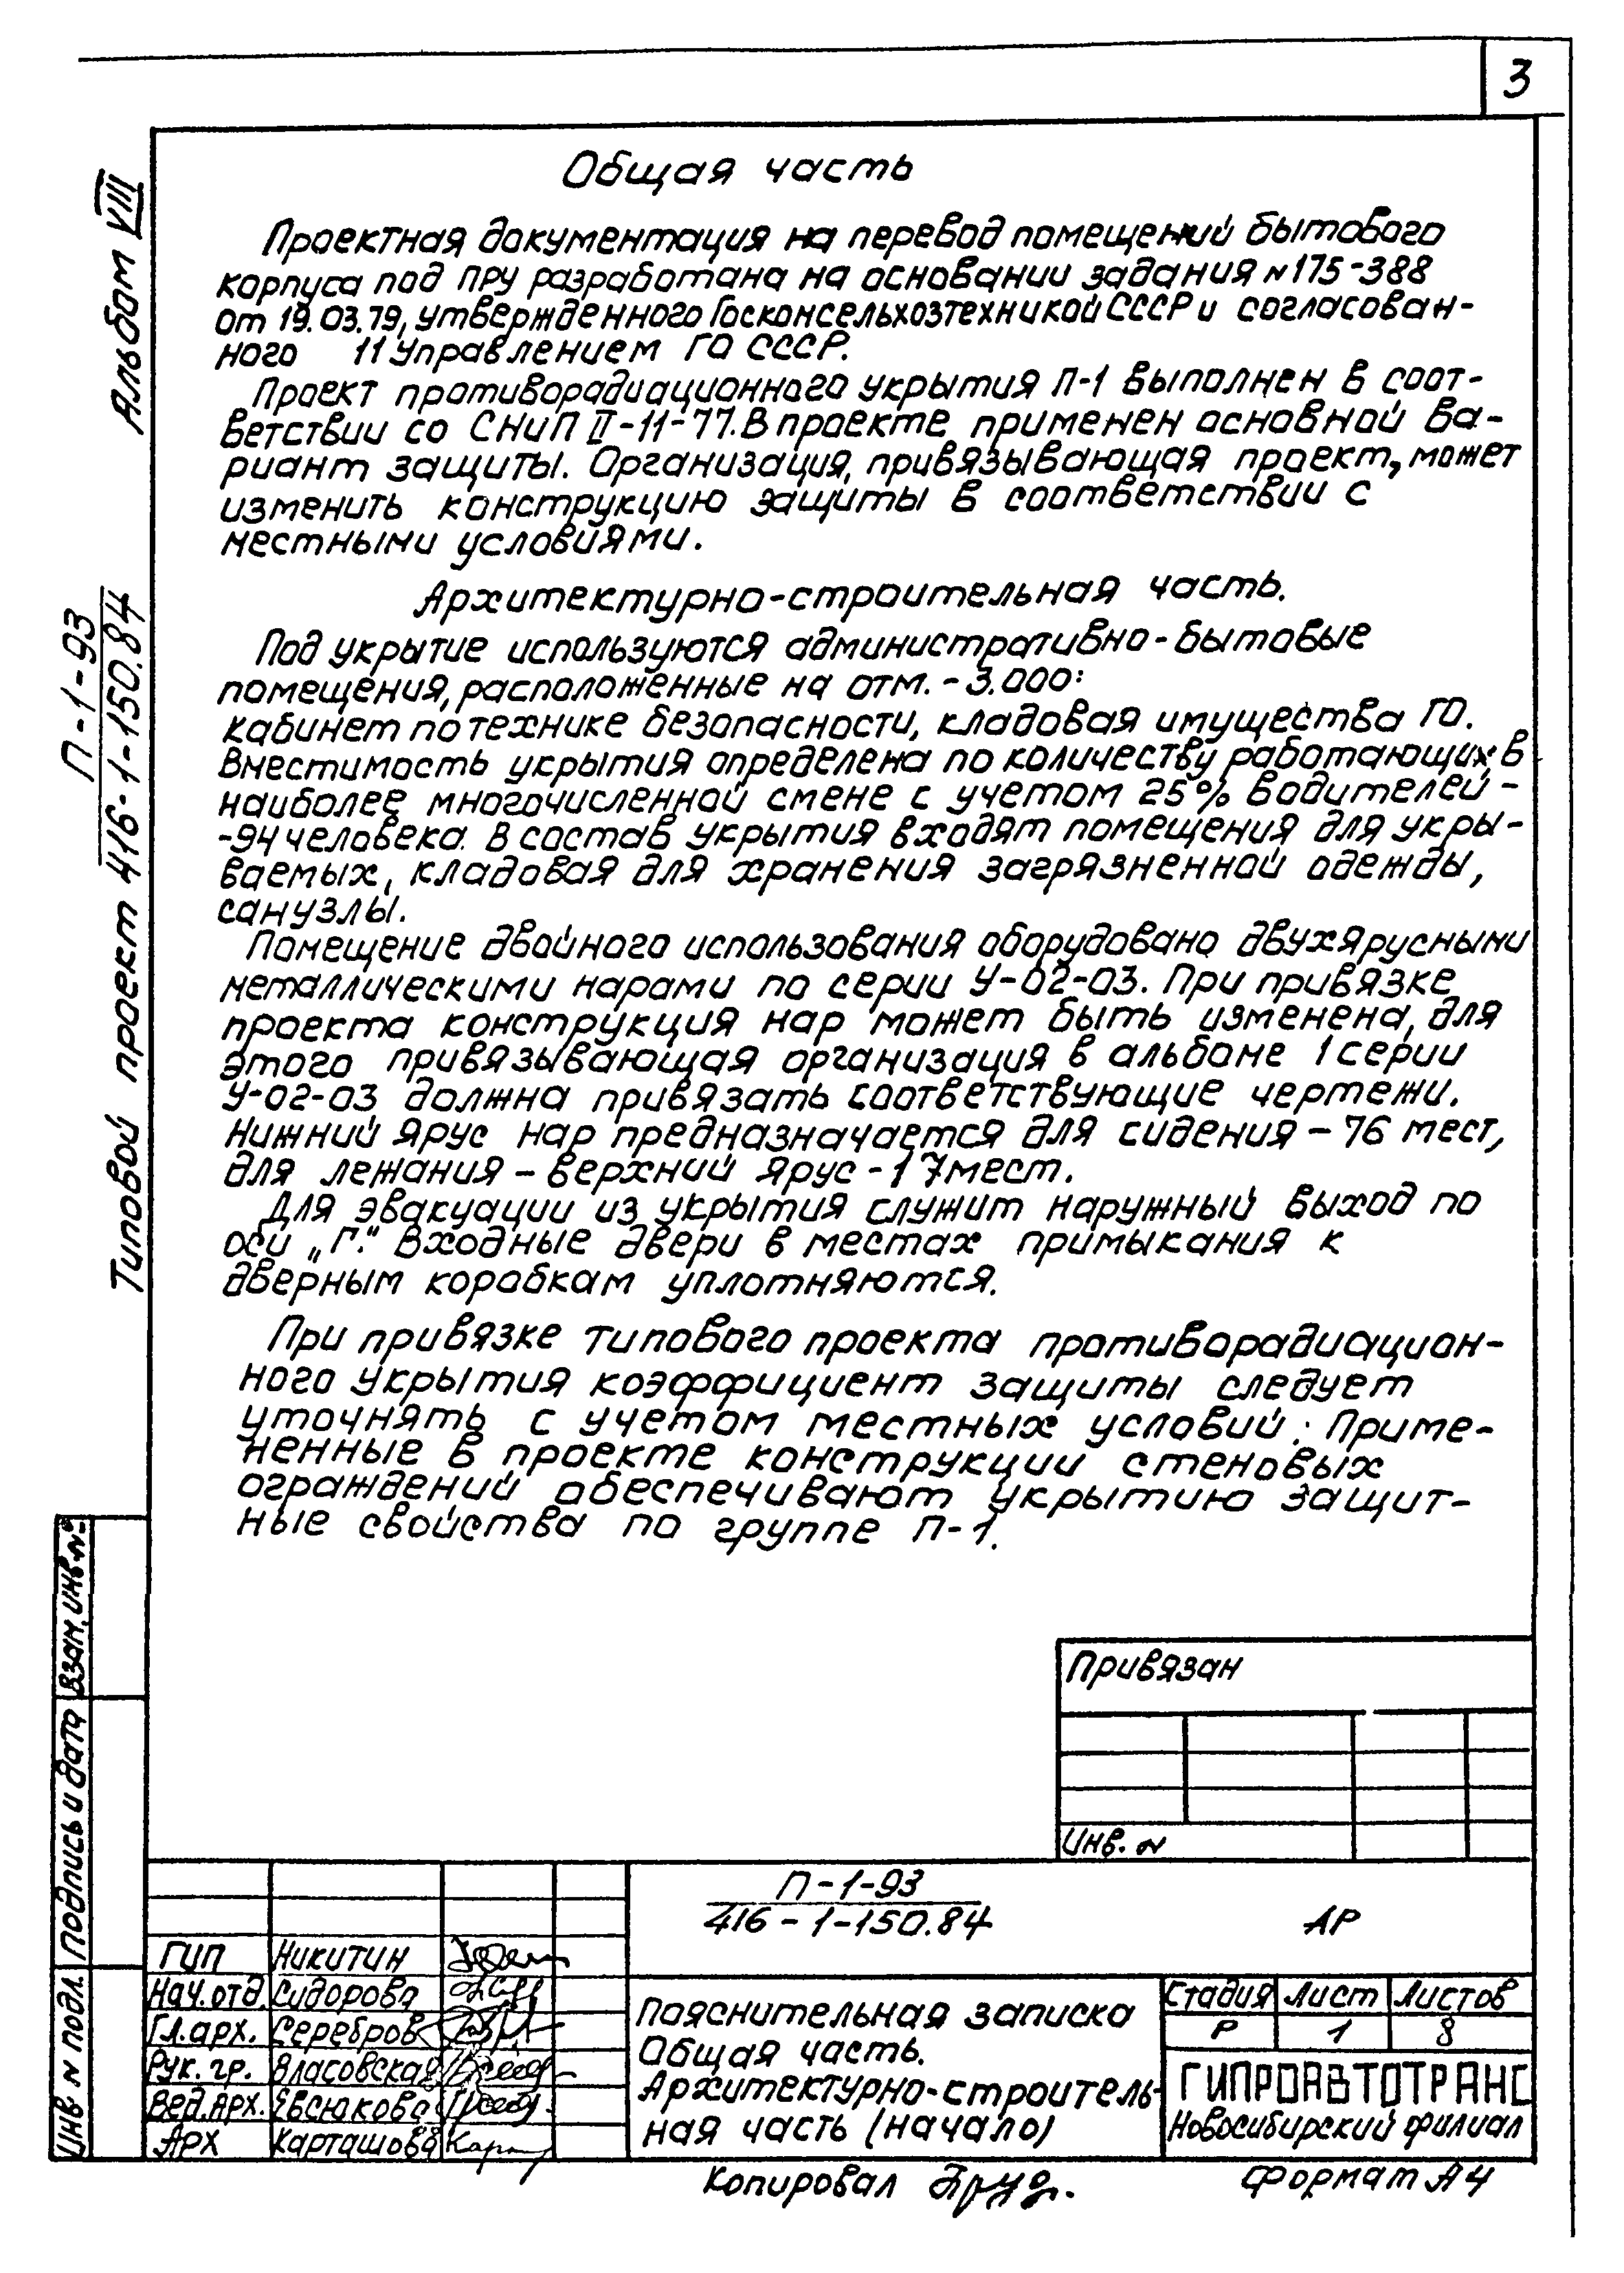 3
Общая часть
Проектная документация на перевод помещений бытового
корпуса под ПРУ разработана на основании задания №175-388
от 19.03.79, утвержденного Госконсельхозтехникой СССР и согласован-
ного 11 Управлением ГО СССР.
Проект противорадиационного укрытия П-1 выполнен в соот-
ветствии со СНиП II-11-77. В проекте применен основной ва-
риант защиты. Организация, привязывающая проект, может
изменить конструкцию защиты в соответствии с
местными условиями.
Архитектурно-строительная часть.
Под укрытие используются административно-бытовые
помещения, расположенные на отм. -3.000:
кабинет по технике безопасности, кладовая имущества ГО.
Вместимость укрытия определена по количеству работающих в
наиболее многочисленной смене с учетом 25% водителей -
-94 человека. В состав укрытия входят помещения для укры-
ваемых, кладовая для хранения загрязненной одежды,
санузлы.
Помещение двойного использования оборудовано двухярусными
металлическими нарами по серии У-02-03. При привязке
проекта конструкция нар может быть изменена, для
этого привязывающая организация в альбоме 1 серии
У-02-03 должна привязать соответствующие чертежи.
Нижний ярус нар предназначается для сидения - 76 мест,
для лежания - верхний ярус - 17 мест.
Для эвакуации из укрытия служит наружный выход по
оси „Г." Входные двери в местах примыкания к
дверным коробкам уплотняются.
При привязке типового проекта противорадиацион-
ного укрытия коэффициент защиты следует
уточнять с учетом местных условий. Приме-
ненные в проекте конструкции стеновых
ограждений обеспечивают укрытию защит-
ные свойства по группе П-1.
Альбом VIII
Типовой проект П-1-93
416-1-150.84
Взам. инв. №
Подпись и дата
Инв № подл.
Привязан
Инв. №
П-1-93
416-1-150.84
АР
ГИП Никитин
Нач. отд. Сидорова
Гл. арх. Серебров
Рук. гр. Власовская
Вед. Арх. Евсюкова
Арх Карташова
Пояснительная записка
Общая часть.
Архитектурно-строитель-
ная часть (начало)
Стадия Лист Листов
Р 1 8
ГИПРОАВТОТРАНС
Новосибирский филиал
Копировал
Формат А4